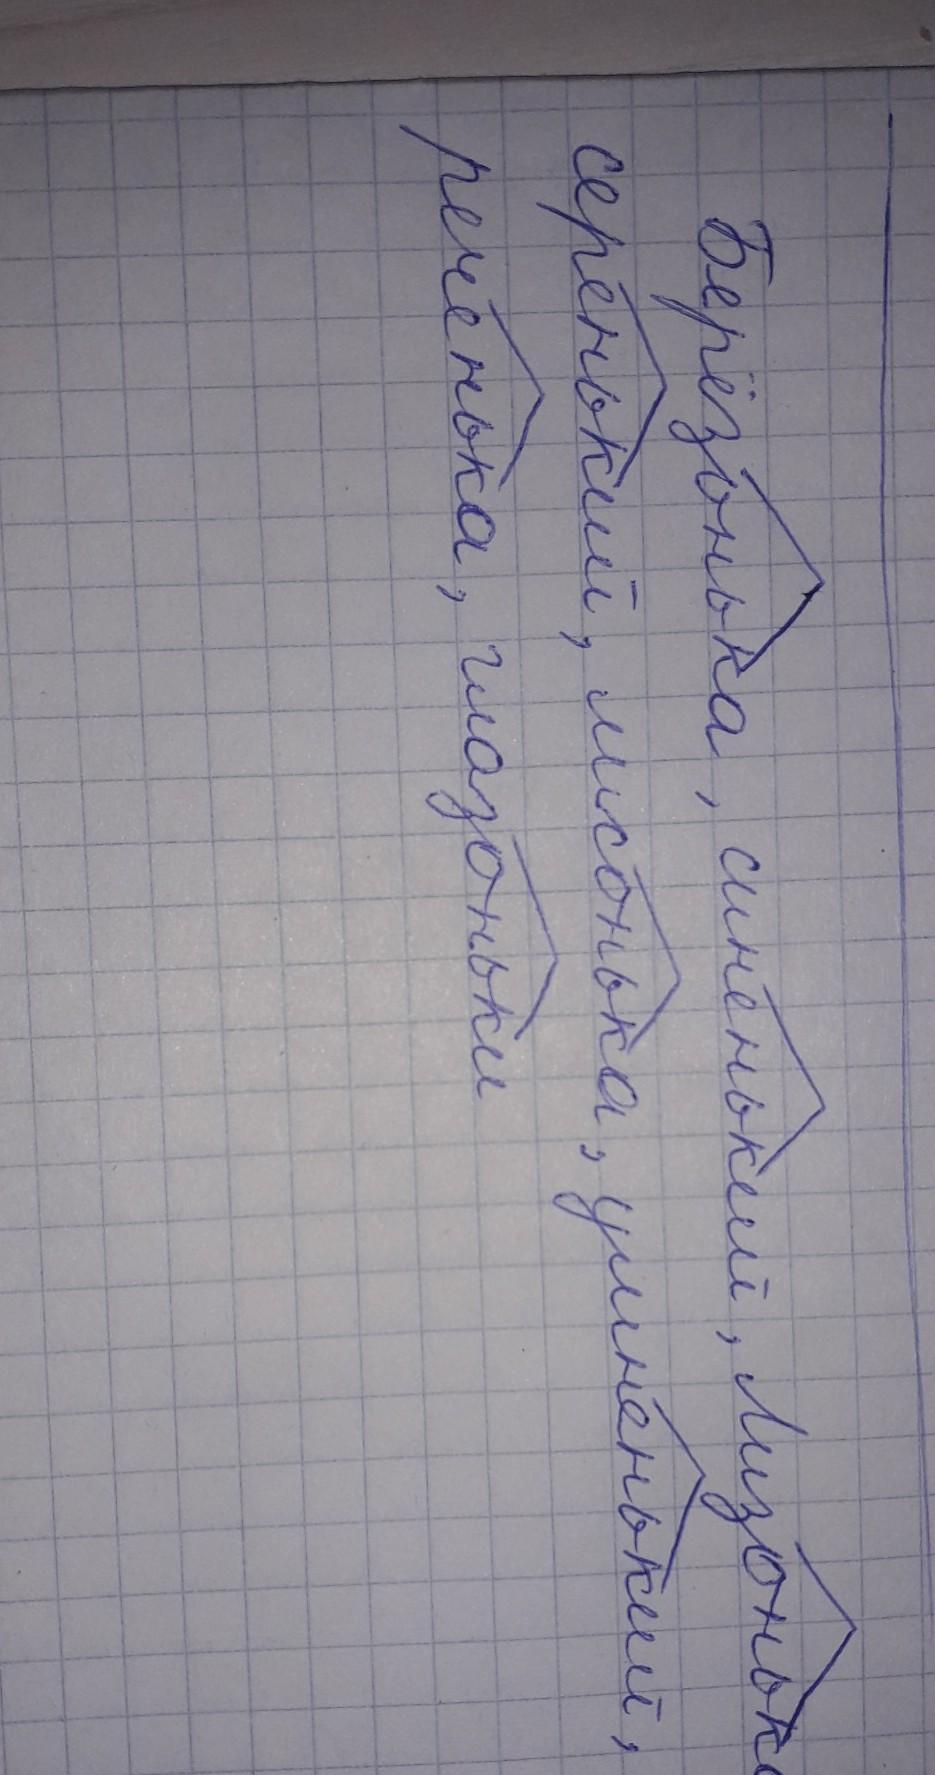 Берёзонька, синенький, Лизонька
серенький, лисонька, умненький,
реченька, глазоньки